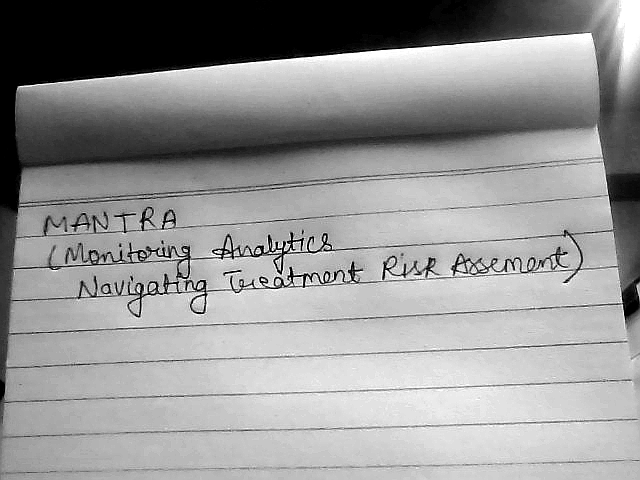 MANTRA
(Monitoring Analytics
Navigating Treatment Risk Assement)